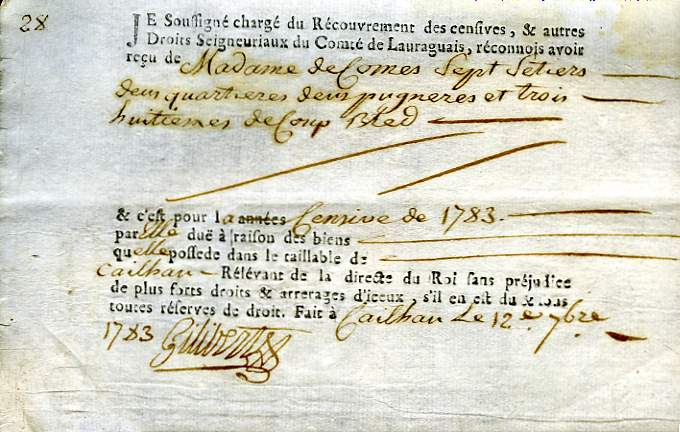 28
JE Soussigné chargé du Récouvrement des censives, & autres
Droits Seigneuriaux du Comté de Lauraguais, réconnois avoir
reçu de Madame de Comes Sept Setiers
deus quartieres deus pugneres et trois
huitiemes de Coup Bled
& c'est pour la années Censive de 1783.
par elle duë à raison des biens
qu'elle possede dans le taillable de
Cailhau Rélévant de la directe du Roi sans préjudice
de plus forts droits & arrerages d'iceux, s'il en est du & sous
toutes réserves de droit. Fait à Cailhau Le 12e. 7bre
1783 Gilibert